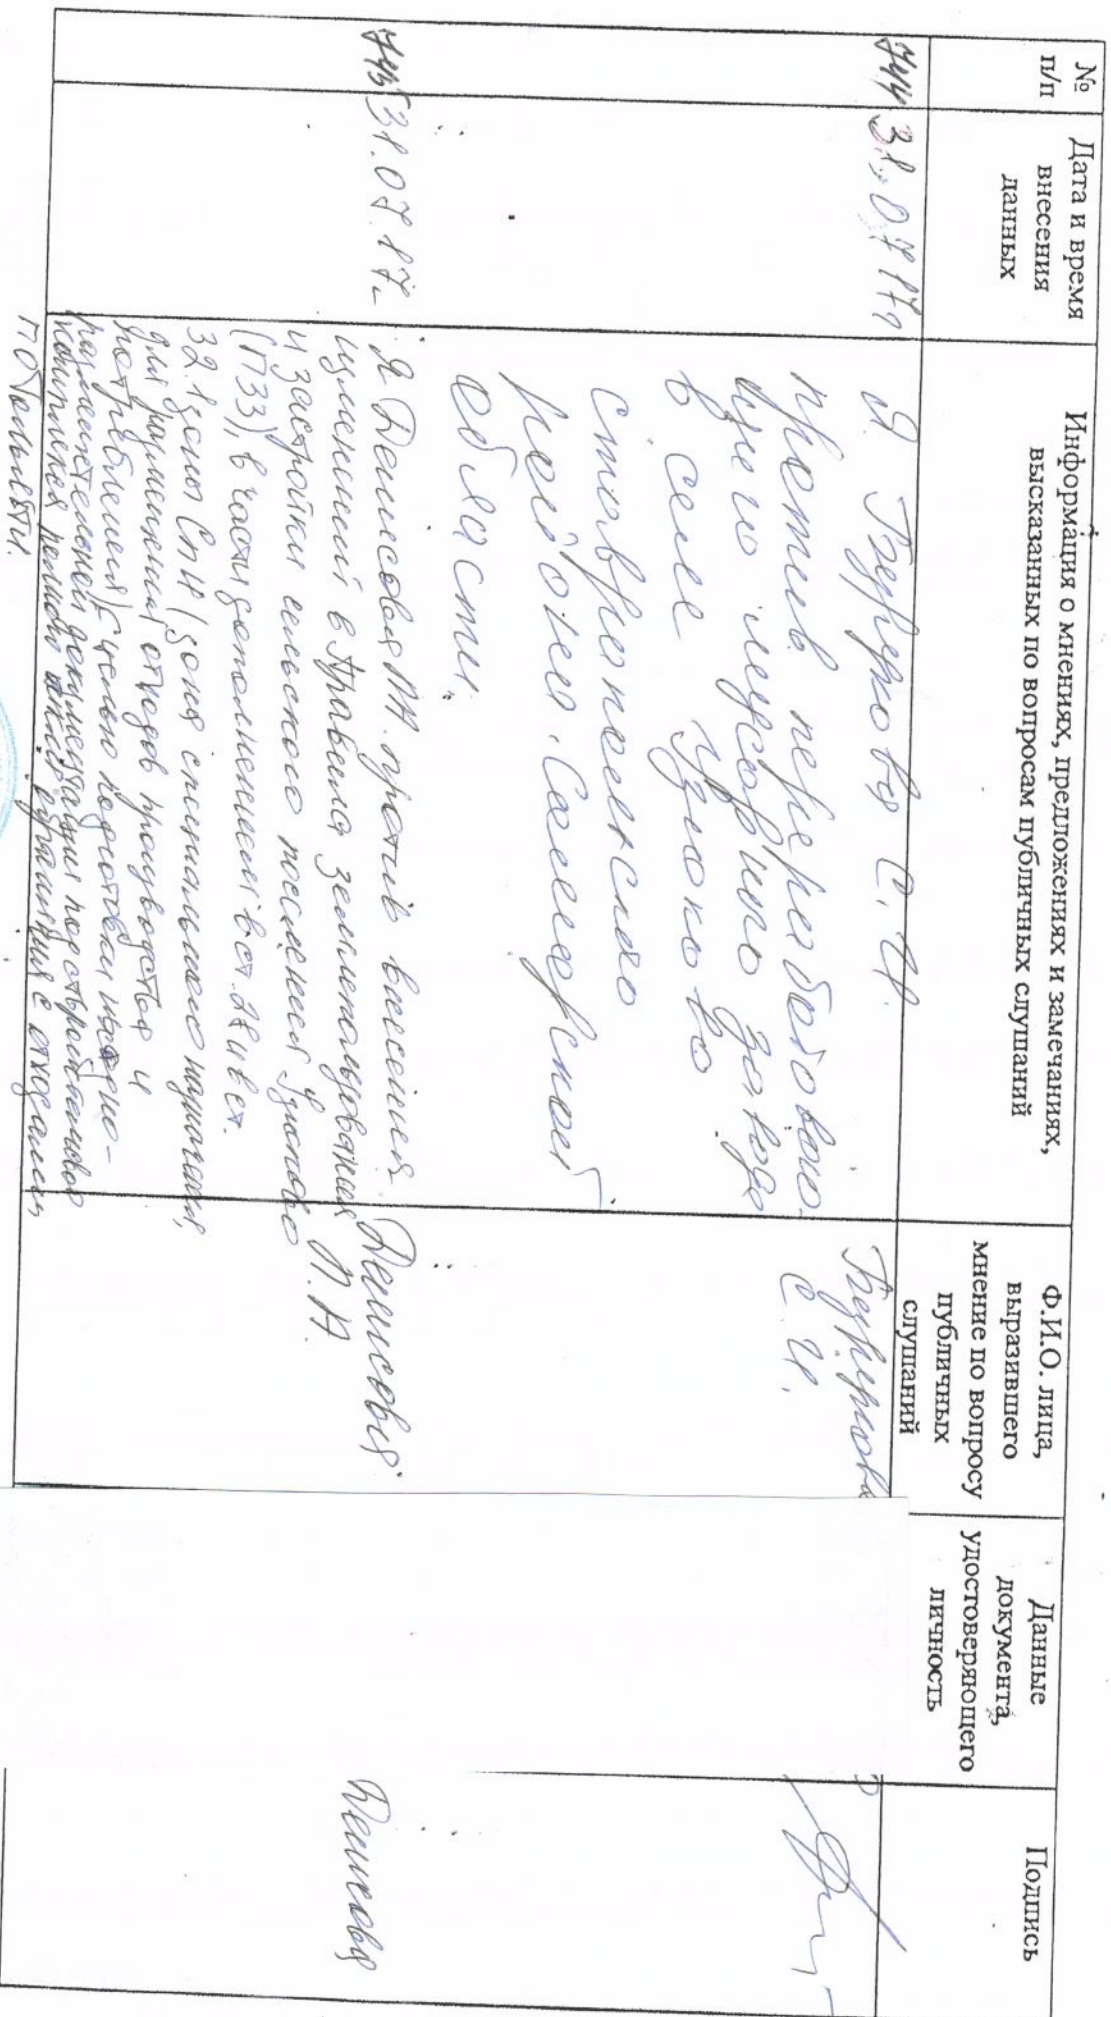 №
п/п
Дата и время
внесения
данных
Информация о мнениях, предложениях и замечаниях,
высказанных по вопросам публичных слушаний
Ф.И.О. лица,
выразившего
мнение по вопросу
публичных
слушаний
Данные
документа,
удостоверяющего
личность
Подпись
744
31.07.17г
Я С.И.
против перерабатываю-
щего мусорного завода
в селе Узюково
Ставропольского
района, Самарской
области.
С.И.
745
31.07.17г
Я Денисова против внесения
изменений в Правила землепользования
и застройки сельского поселения Узюково
(ПЗЗ), в части дополнения в ст. 28 и в ст.
32.1 зоны Сп (зона специального назначения,
для размещения отходов производства и
потребления) с целью подготовки исходно-
разрешительной документации под строительство
комплекса обращения с отходами
Тольятти.
Денисова
Денисова